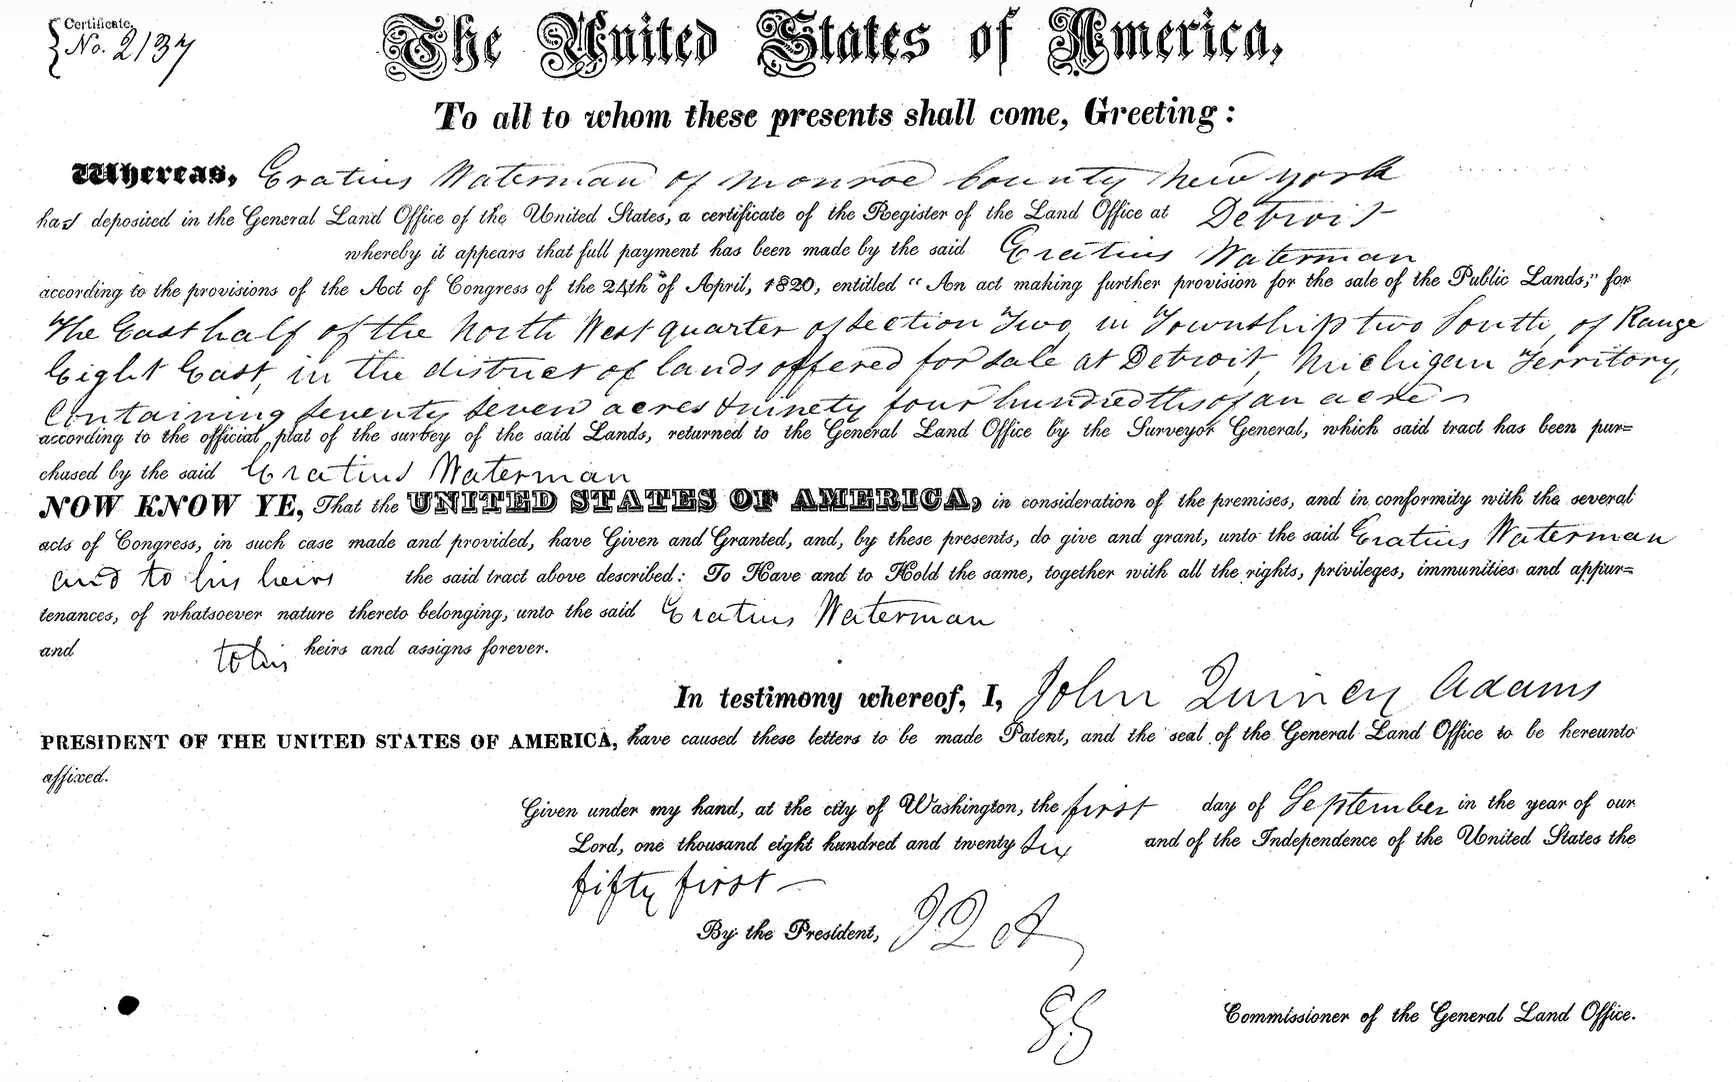 Certificate
No. 2137
The United States of America,
To all to whom these presents shall come, Greeting:
Whereas, Eratius Waterman of Monroe County New York
has deposited in the General Land Office of the United States, a certificate of the Register of the Land Office at Detroit
whereby it appears that full payment has been made by the said Eratius Waterman
according to the provisions of the Act of Congress of the 24th of April, 1820, entitled "An act making further provision for the sale of the Public Lands;" for
The East half of the North West quarter of Section Two, in Township two South, of Range
Eight East, in the district of lands offered for sale at Detroit, Michigan Territory,
Containing seventy seven acres & ninety four hundredths of an acre
according to the official plat of the survey of the said Lands, returned to the General Land Office by the Surveyor General, which said tract has been pur=
chased by the said Eratius Waterman
NOW KNOW YE, That the UNITED STATES OF AMERICA, in consideration of the premises, and in conformity with the several
acts of Congress, in such case made and provided, have Given and Granted, and, by these presents, do give and grant, unto the said Eratius Waterman
and to his heirs the said tract above described: To Have and to Hold the same, together with all the rights, privileges, immunities and appur=
tenances, of whatsoever nature thereto belonging, unto the said Eratius Waterman
and to his heirs and assigns forever.
In testimony whereof, I, John Quincy Adams
PRESIDENT OF THE UNITED STATES OF AMERICA, have caused these letters to be made Patent, and the seal of the General Land Office to be hereunto
affixed.
Given under my hand, at the city of Washington, the first day of September in the year of our
Lord, one thousand eight hundred and twenty six and of the Independence of the United States the
fifty first —
By the President, J Q A
GG
Commissioner of the General Land Office.